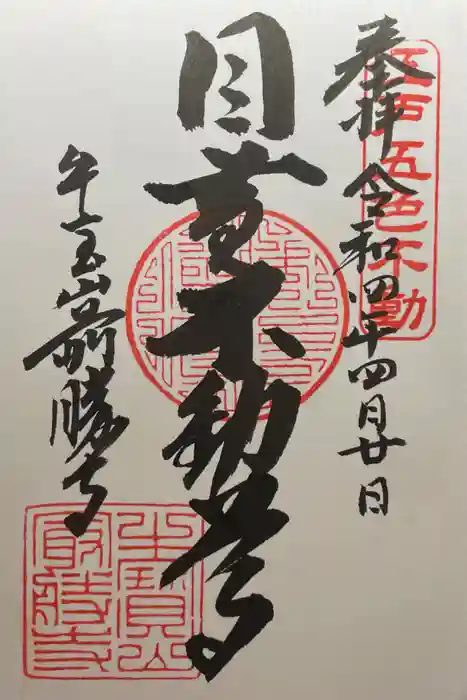 奉拝 令和四年四月廿日
江戸五色不動
目黄不動尊
牛宝山最勝寺
牛寳山
最勝寺